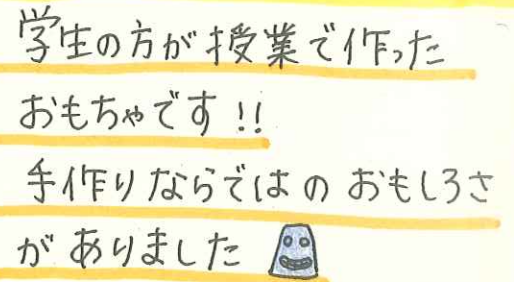 学生の方が授業で作った
おもちゃです!!
手作りならではのおもしろさ
がありました